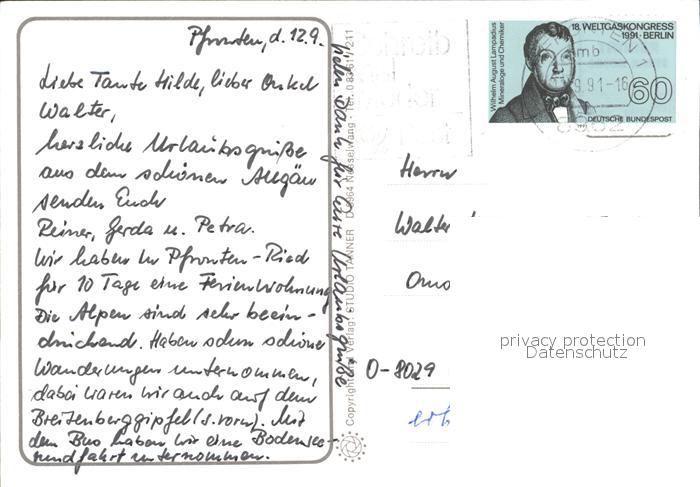 Pfronten, d. 12.9.
Liebe Tante Hilde, lieber Onkel
Walter,
herzliche Urlaubsgrüße
aus dem schönen Allgäu
senden Euch
Reiner, Gerda u. Petra.
Wir haben in Pfronten-Ried
für 10 Tage eine Ferienwohnung
Die Alpen sind sehr beein-
druckend. Haben schon schöne
Wanderungen unternommen,
dabei waren wir auch auf dem
Breitenberggipfel (s. vorn). Mit
dem Bus haben wir eine Bodensee-
rundfahrt unternommen.
Vielen Dank für Eure Urlaubsgrüße
Copyright Verlag: STUDIO TANNER Nesselwang
18. WELTGASKONGRESS
1991 · BERLIN
Wilhelm August Lampadius
Mineraloge und Chemiker
60
DEUTSCHE BUNDESPOST
9.91-16
Herrn
Walter
O-8029
privacy protection
Datenschutz